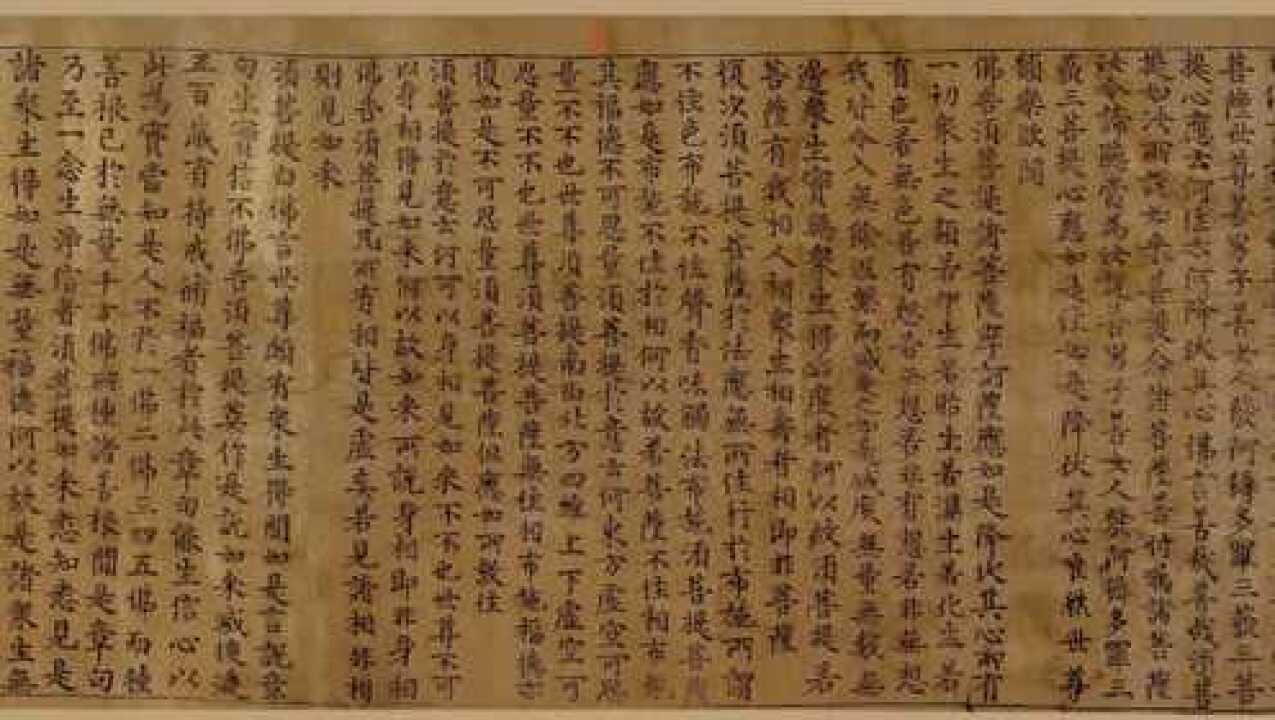 菩薩世尊善男子善女人發阿耨多羅三藐三菩
提心應云何住云何降伏其心佛言善哉善哉須菩
提如汝所說如來善護念諸菩薩善付囑諸菩薩
汝今諦聽當為汝說善男子善女人發阿耨多羅三
藐三菩提心應如是住如是降伏其心唯然世尊
願樂欲聞
佛告須菩提諸菩薩摩訶薩應如是降伏其心所有
一切衆生之類若卵生若胎生若濕生若化生若
有色若無色若有想若无想若非有想若非無想
我皆令入無餘涅槃而滅度之如是滅度無量無數無
邊衆生實無衆生得滅度者何以故須菩提若
菩薩有我相人相衆生相壽者相即非菩薩
復次須菩提菩薩於法應無所住行於布施所謂
不住色布施不住聲香味觸法布施須菩提菩薩
應如是布施不住於相何以故若菩薩不住相布施
其福德不可思量須菩提於意云何東方虛空可思
量不不也世尊須菩提南西北方四維上下虛空可
思量不不也世尊須菩提菩薩無住相布施福德亦
復如是不可思量須菩提菩薩但應如所教住
須菩提於意云何可以身相見如來不不也世尊不可
以身相得見如來何以故如來所說身相即非身相
佛告須菩提凡所有相皆是虛妄若見諸相非相
則見如來
須菩提白佛言世尊頗有衆生得聞如是言說章
句生實信不佛告須菩提莫作是說如來滅後後
五百歲有持戒修福者於此章句能生信心以
此為實當知是人不於一佛二佛三四五佛而種
善根已於無量千万佛所種諸善根聞是章句
乃至一念生淨信者須菩提如來悉知悉見是
諸衆生得如是無量福德何以故是諸衆生無